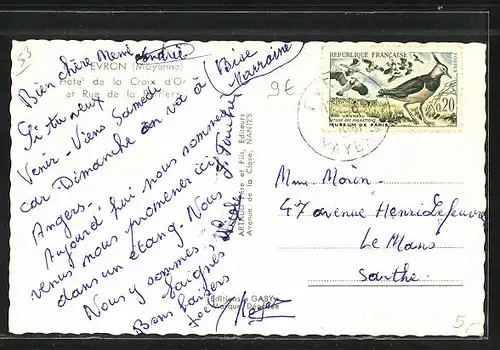 53
EVRON (Mayenne)
Hôtel de la Croix d'Or
et Rue de la
Bien chère Mémé
Si tu veux
Venir - Viens Samedi
car Dimanche on va à
Angers.
Aujourd'hui nous sommes
venus nous promener ici
dans un étang. Nous
Nous y sommes
baignés
Bons baisers
Bise
Marraine
ARTAUD Père et Fils, Editeurs
Avenue de la Close, NANTES
Editions « GABY »
Marque Déposée
9€
REPUBLIQUE FRANÇAISE
POSTES
0,20
VANNEAU
ETUDE DES MIGRATIONS
MUSEUM DE PARIS
Mme Morin
47 avenue Henri Lefeuvre
Le Mans
Sarthe
5,-